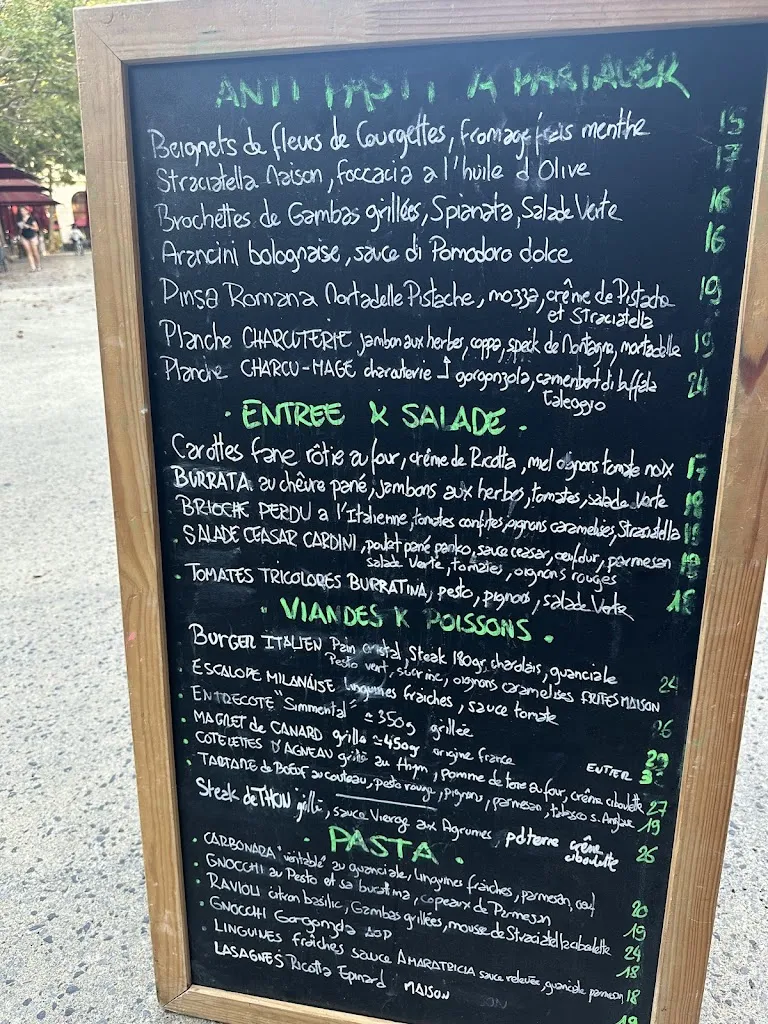 ANTI PASTI A PARTAGER
Beignets de fleurs de Courgettes, fromage frais menthe 15
Straciatella Maison, foccacia a l'huile d'Olive 17
Brochettes de Gambas grillées, Spianata, Salade Verte 16
Arancini bolognaise, sauce di Pomodoro dolce 16
Pinsa Romana Mortadelle Pistache, mozza, crême de Pistache 19
et Straciatella
Planche CHARCUTERIE jambon aux herbes, coppa, speck de Montagne, mortadelle 19
Planche CHARCU-MAGE charcuterie gorgonzola, camenbert di buffala 24
taleggio
· ENTREE & SALADE ·
Carottes fane rôtie au four, crême de Ricotta, miel oignons tomate noix 17
BURRATA au chêvre pané, jambons aux herbes, tomates, salade Verte
· BRIOCHE PERDU a l'Italienne, tomates confites, pignons caramelises, Straciatella
· SALADE CEASAR CARDINI, poulet pané panko, sauce ceasar, oeuf dur, parmesan 19
salade Verte, tomates, oignons rouges
· TOMATES TRICOLORES BURRATINA, pesto, pignons, salade Verte 18
· VIANDES & POISSONS ·
BURGER ITALIEN Pain cristal, Steak 180gr charolais, guanciale
Pesto vert, sucrine, oignons caramelises FRITES MAISON 24
· ESCALOPE MILANAISE linguines fraiches, sauce tomate 26
· ENTRECOTE "Simmental" ≃ 350g grillée 29
· MAGRET de CANARD grillé ≃ 450g origine france ENTIER
· COTELETTES D'AGNEAU grillé au thym, pomme de terre au four, crême ciboulette 27
· TARTARE de BOEUF au couteau, pesto rouge, pignons, parmesan, tabasco s. Anglaise 19
Steak de THON grillé, sauce Vierge aux Agrumes, pdterre crême 26
ciboulette
· PASTA ·
· CARBONARA "véritable" au guanciale, linguines fraiches, parmesan, oeuf 20
· GNOCCHI au Pesto et sa burratina, copeaux de Parmesan 19
· RAVIOLI citron basilic, Gambas grillées, mousse de Straciatella ciboulette 24
· GNOCCHI Gorgonzola AOP 18
· LINGUINES fraîches sauce AMARATRICIA sauce relevée, guanciale parmesan 18
LASAGNES Ricotta Epinard MAISON 19